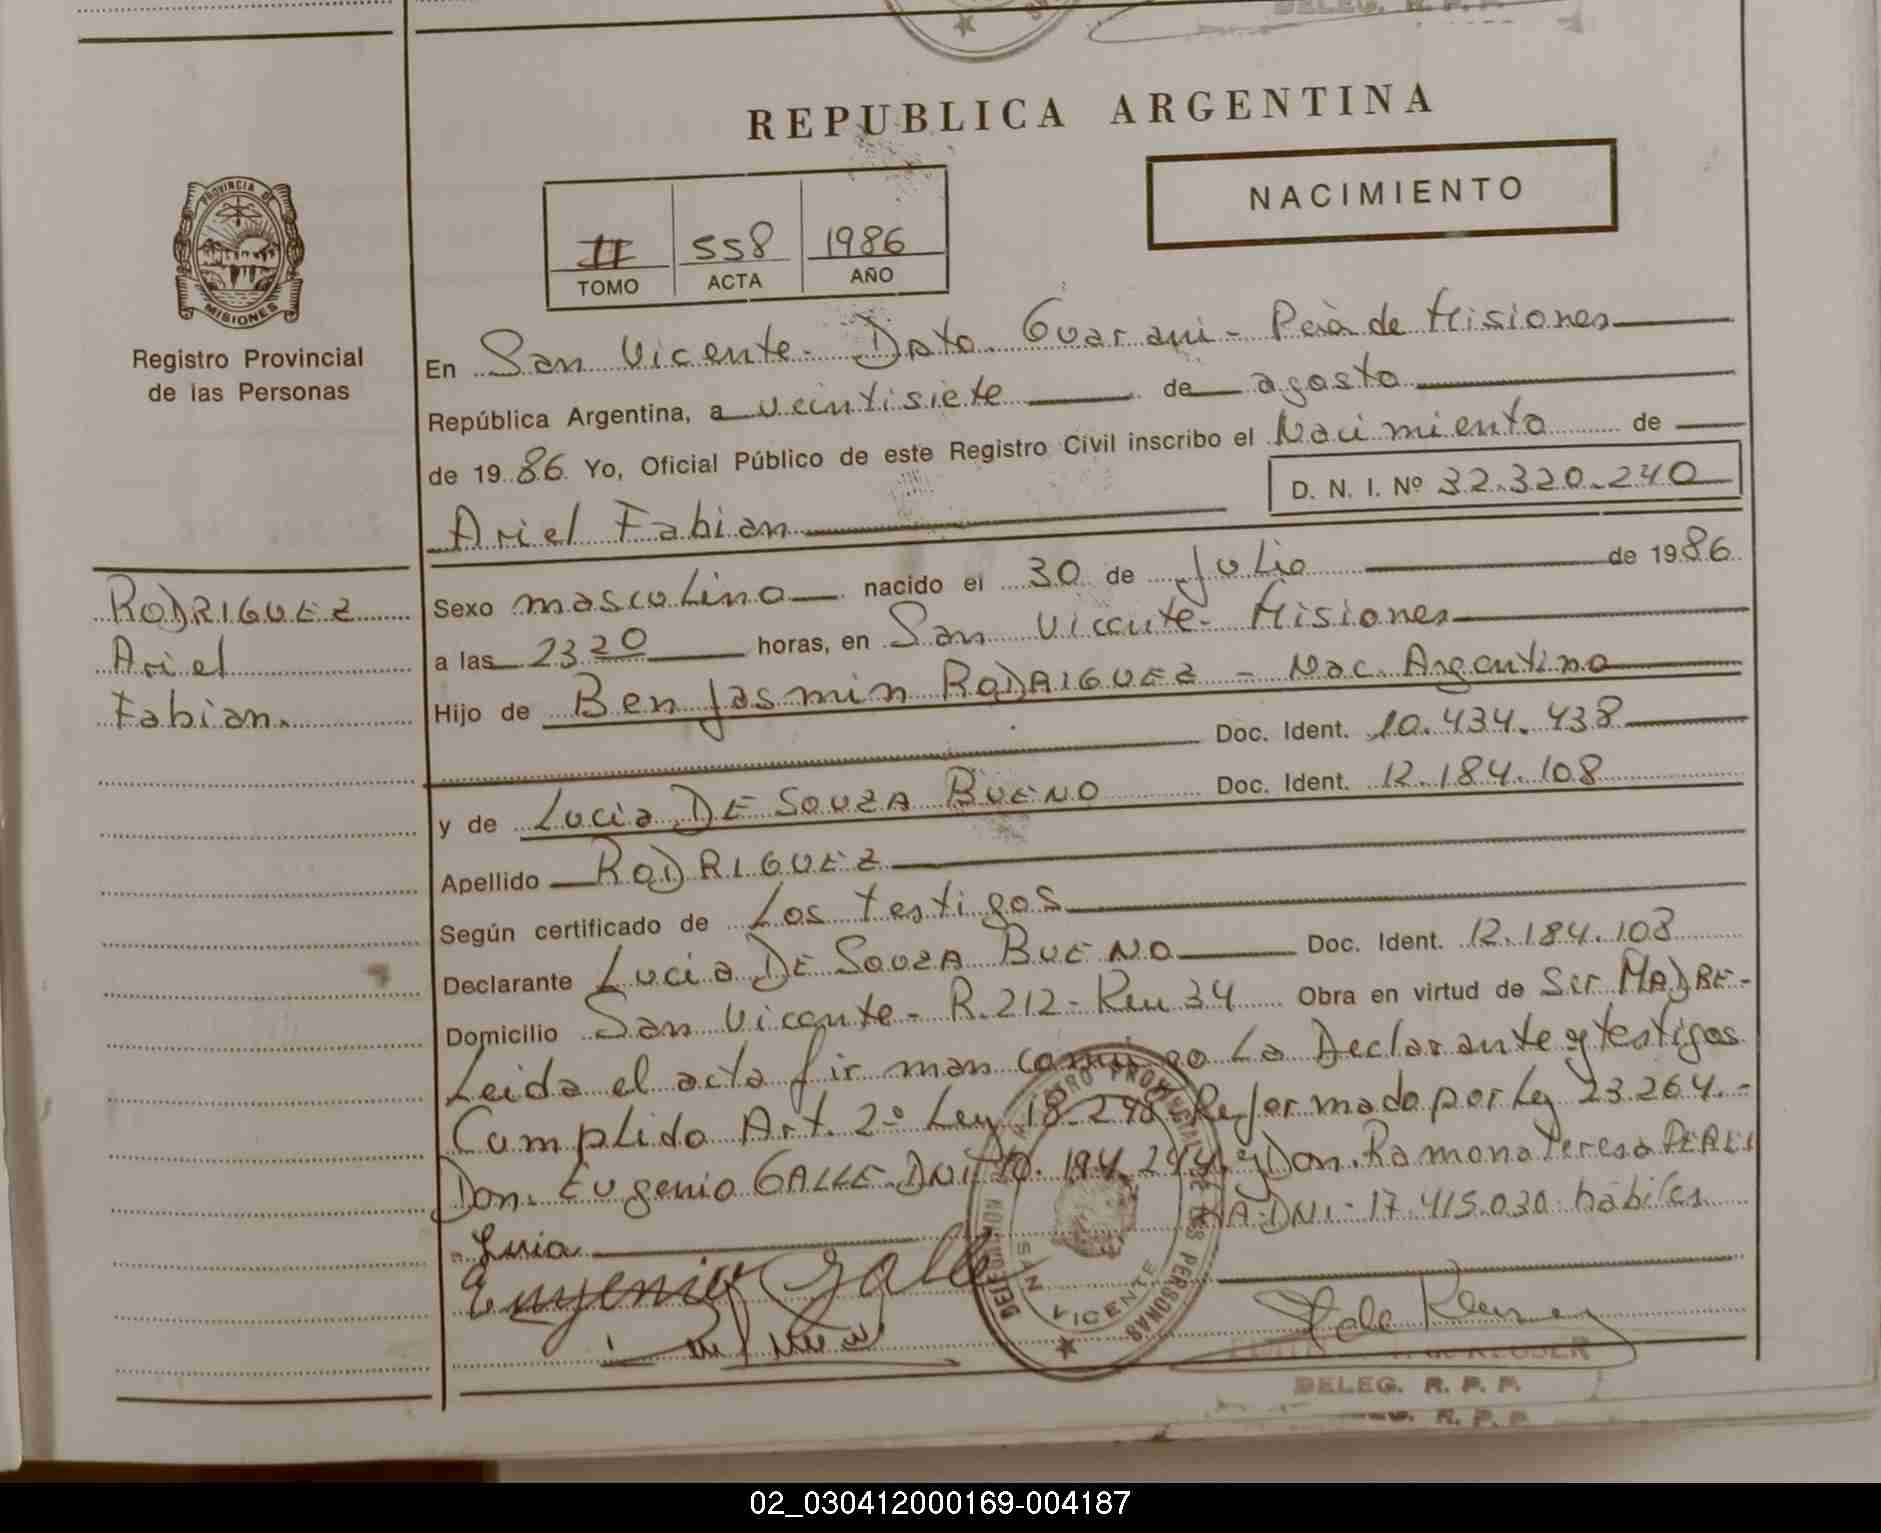 DELEG. R. P. P.
REPUBLICA ARGENTINA
NACIMIENTO
II 558 1986
TOMO ACTA AÑO
PROVINCIA DE MISIONES
Registro Provincial
de las Personas
En San Vicente - Dpto. Guarani - Pcia de Misiones
República Argentina, a veintisiete de agosto
de 1986 Yo, Oficial Público de este Registro Civil inscribo el Nacimiento de
D. N. I. Nº 32.320.240
Ariel Fabian
RODRIGUEZ
Ariel
Fabian.
Sexo masculino nacido el 30 de Julio de 1986
a las 23 20 horas, en San Vicente - Misiones
Hijo de Benjasmin RODRIGUEZ - Nac. Argentino
Doc. Ident. 10.434.438
y de Lucia DE SOUZA BUENO Doc. Ident. 12.184.108
Apellido RODRIGUEZ
Según certificado de Los testigos
Declarante Lucia DE SOUZA BUENO Doc. Ident. 12.184.108
Domicilio San Vicente - R. 212 - Km 34 Obra en virtud de Ser MADRE -
Leida el acta firman conmigo La Declarante y testigos
Cumplido Art. 2º Ley 18.248 Reformado por Ley 23.264.-
Don. Eugenio GALLE DNI 194.244 y Don. Ramona Teresa
DNI - 17.415.030 habiles
Eugenio Galle
REGISTRO PROVINCIAL DE LAS PERSONAS
SAN VICENTE
DELEG. R. P. P.
R. P. P.
02_030412000169-004187